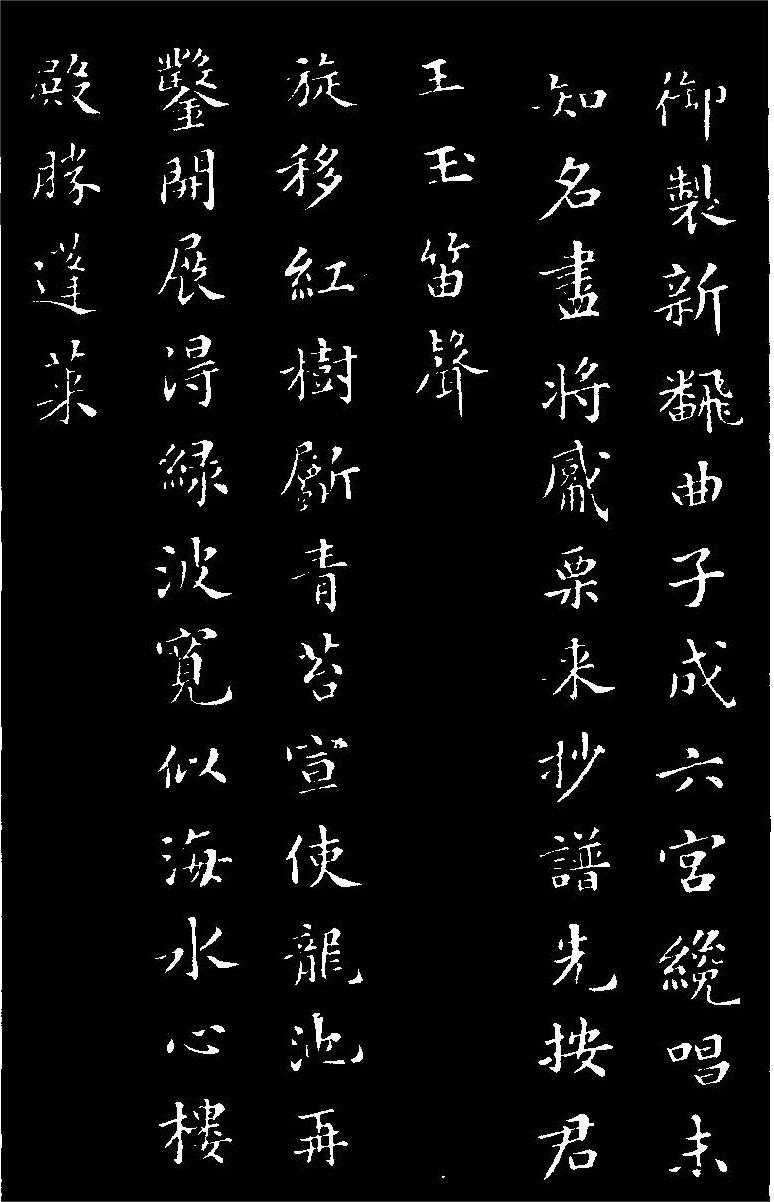 御製新飜曲子成六宮纔唱未
知名盡将觱栗来抄譜先按君
王玉笛聲
旋移紅樹斸青苔宣使龍池再
鑿開展得緑波寛似海水心樓
殿勝蓬萊